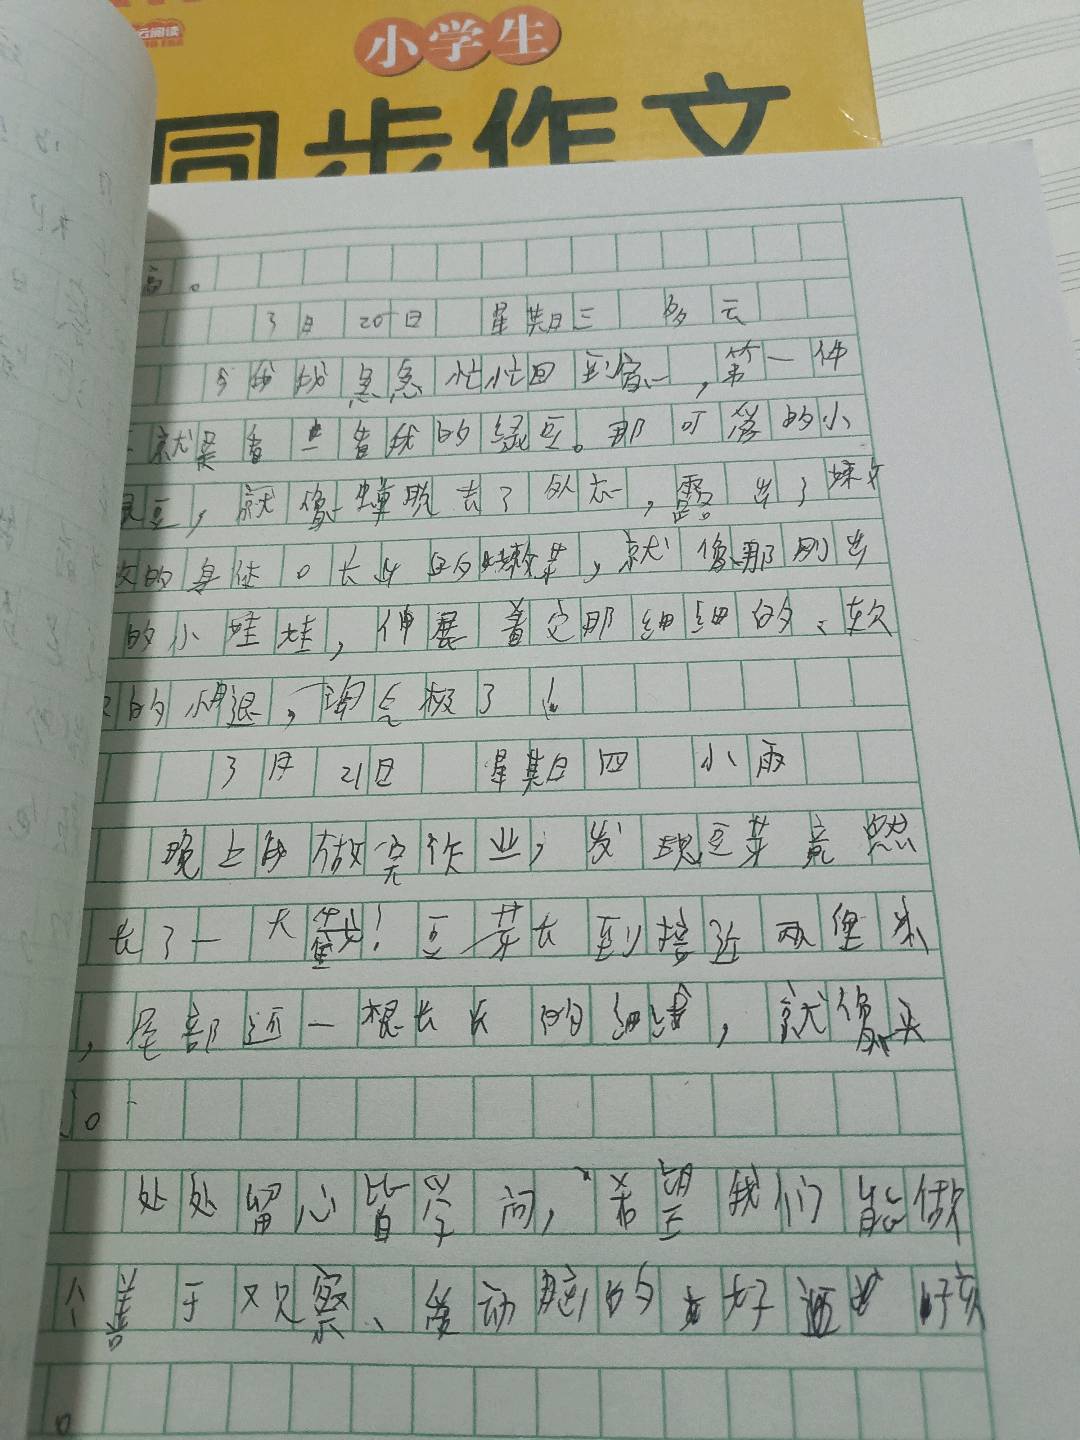 小学生
同步作文
。
3月20日 星期三 多云
今天我急急忙忙回到家，第一件
就是看一看我的绿豆。那可爱的小
豆，就像蝉脱去了外衣，露出了嫩
的身体。长出的嫩芽，就像那刚出
的小娃娃，伸展着它那细细的、软
的小腿，淘气极了！
3月21日 星期四 小雨
晚上我做完作业，发现豆芽竟然
长了一大截！豆芽长到接近两厘米
，尾部还一根长长的细线，就像头
。
处处留心皆学问，希望我们能做
个善于观察、爱动脑的好孩
。